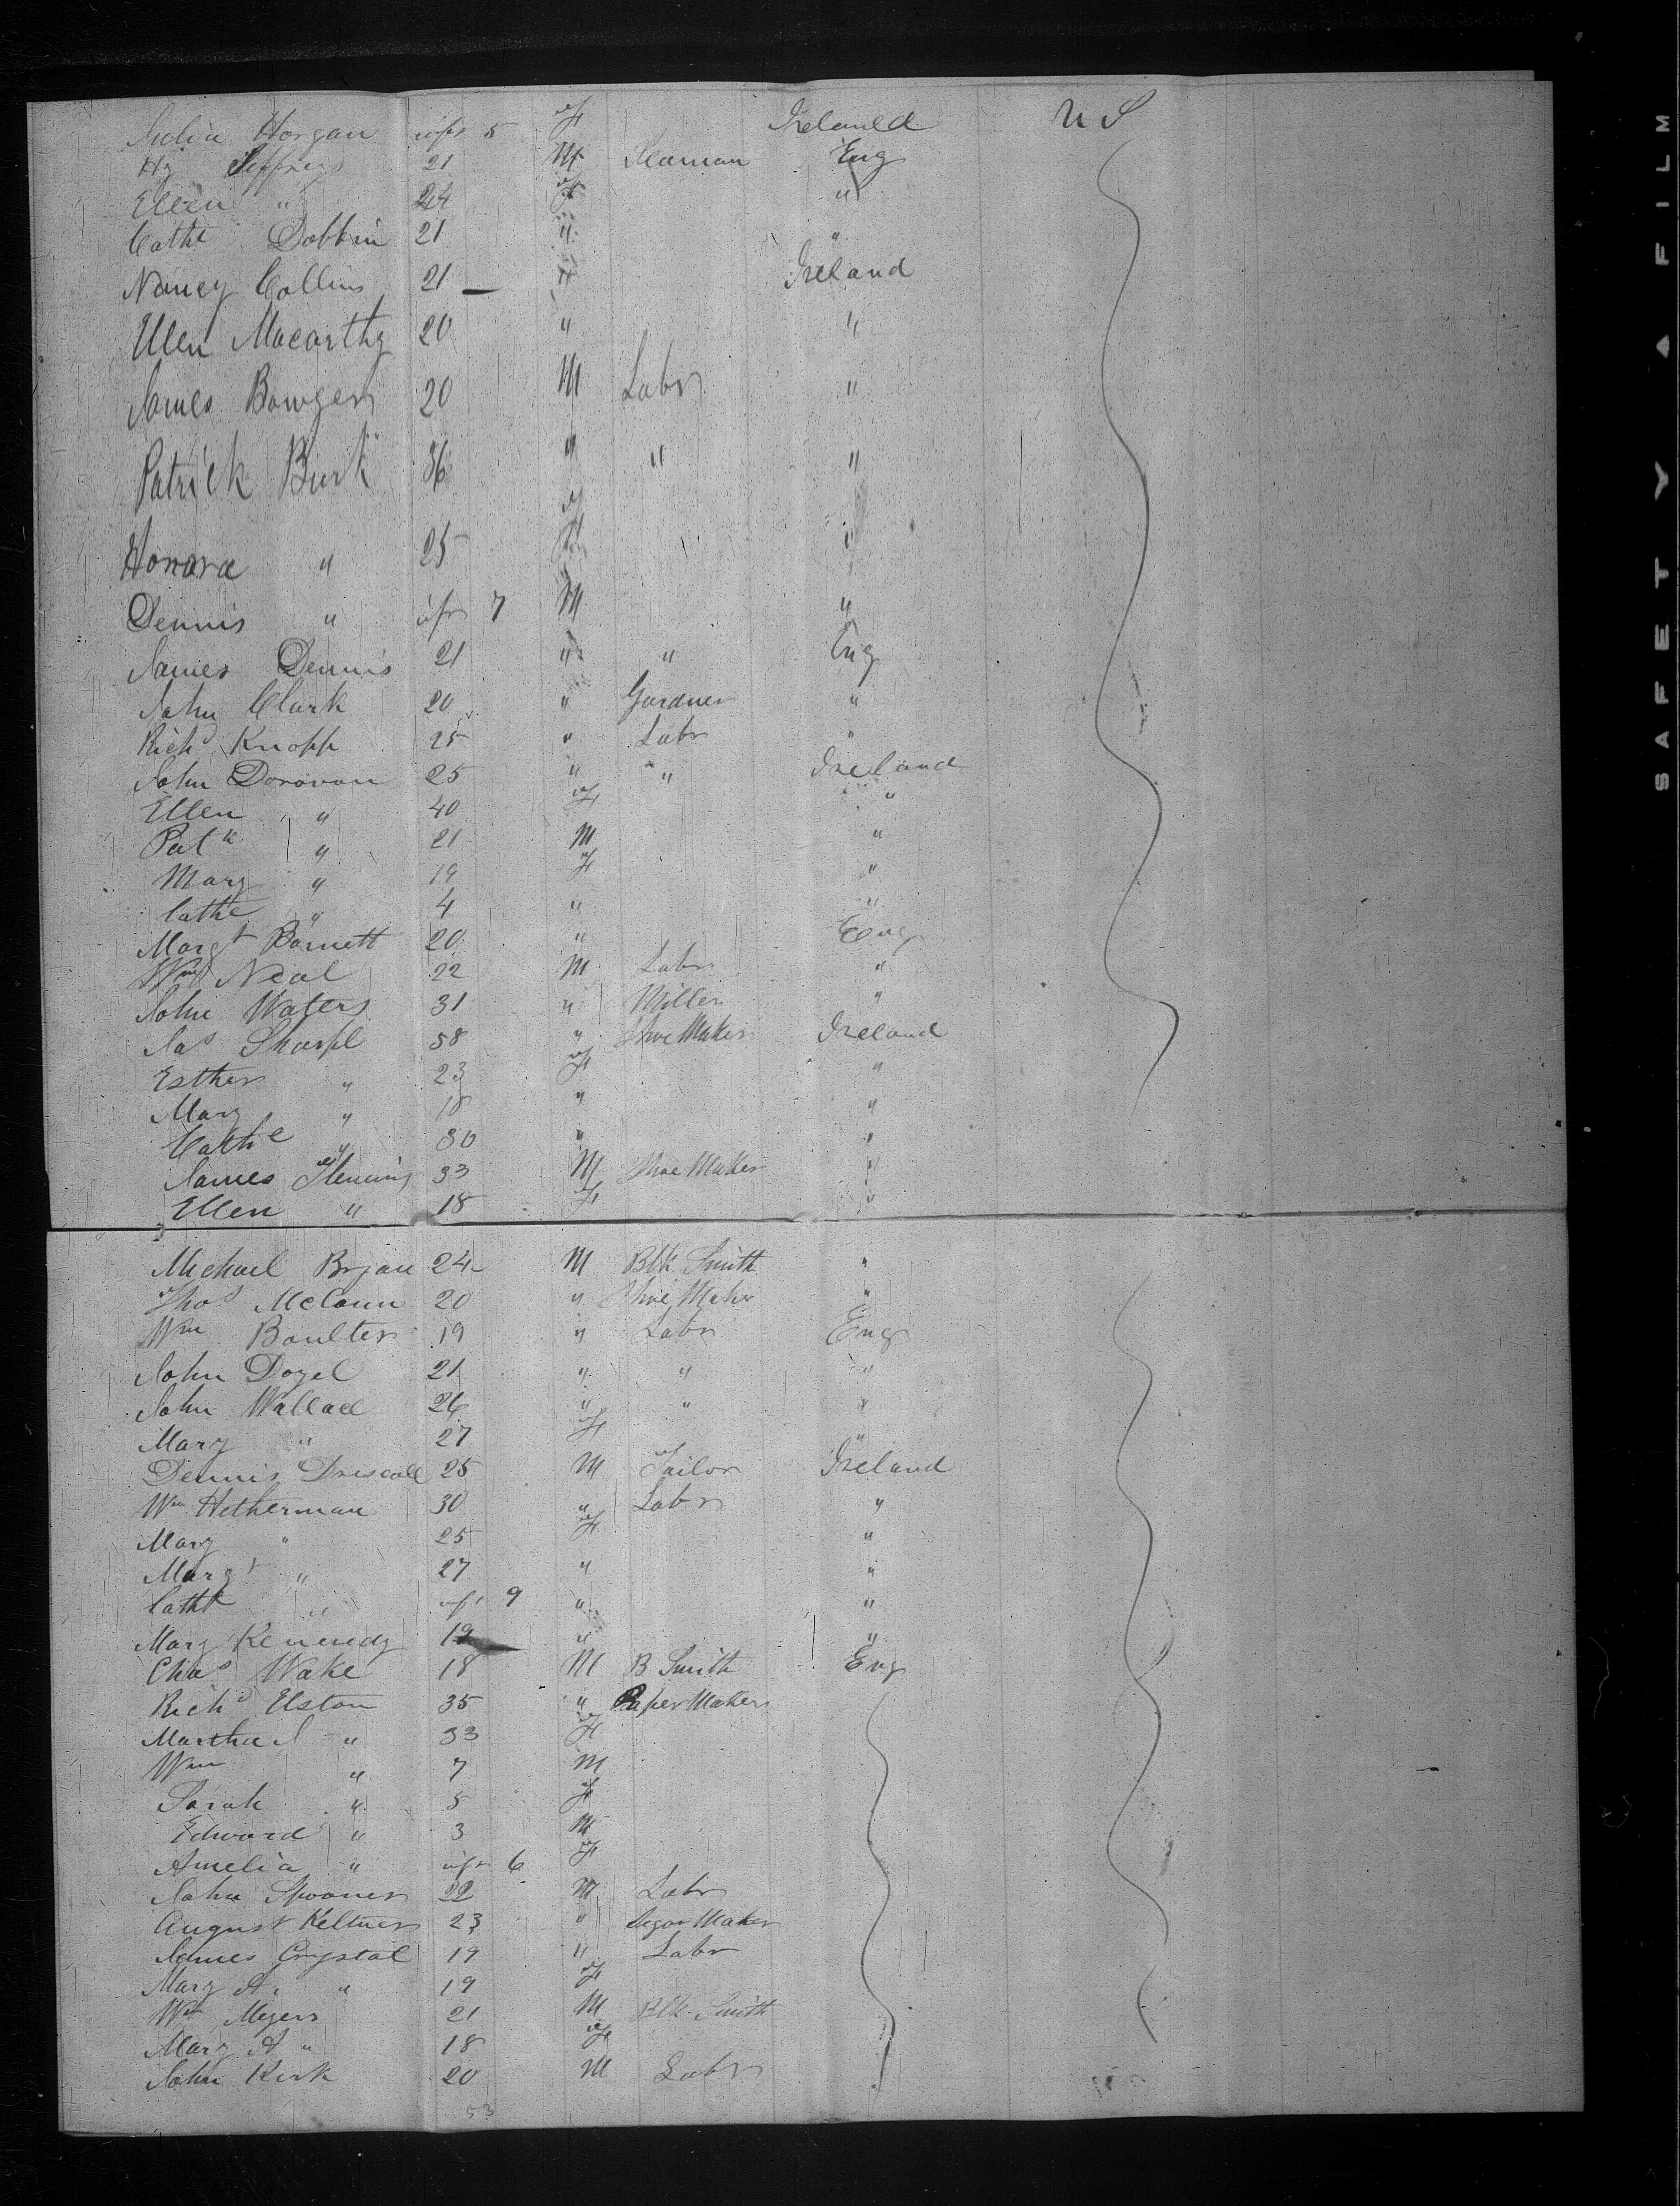 Julia Horgan inft 5 F Ireland U S
Hy Jeffreys 21 M Seaman Eng
Ellen " 24 F "
Cathe Dobbin 21 " "
Nancy Collins 21 " Ireland
Ellen Macarthy 20 " "
James Bowger 20 M Labr "
Patrick Burk 36 " " "
Honora " 25 F "
Dennis " inft 7 M "
James Dennis 21 " " Eng
John Clark 20 " Gardner "
Richd Knopp 25 " Labr "
John Donovan 25 " " Ireland
Ellen " 40 F "
Patk " 21 M "
Mary " 19 F "
Cathe " 4 " "
Margt Barnett 20 " Eng
Wm Neal 22 M Labr "
John Waters 31 " Miller "
Jas Sharpl 58 " Shoe Maker Ireland
Esther " 23 F "
Mary " 18 " "
Cathe " 30 " "
James Fleming 33 M Shoe Maker "
Ellen " 18 F "
Michael Bryan 24 M Blk Smith "
Thos McCann 20 " Shoe Maker "
Wm Boulter 19 " Labr Eng
John Doyel 21 " " "
John Wallace 26 " " "
Mary " 27 F "
Dennis Driscoll 25 M Tailor Ireland
Wm Hetherman 30 " Labr "
Mary " 25 F "
Margt " 27 " "
Cathe " inft 9 " "
Mary Kennedy 19 " "
Chas Wake 18 M B Smith Eng
Richd Elston 35 " Paper Maker
Martha " 33 F
Wm " 7 M
Sarah " 5 F
Edward " 3 M
Amelia " inft 6 F
John Spooner 22 M Labr
August Keltner 23 " Segar Maker
James Crystal 19 " Labr
Mary A. " 19 F
Wm Meyers 21 M Blk Smith
Mary A " 18 F
John Kirk 20 M Labr
53
SAFETY FILM